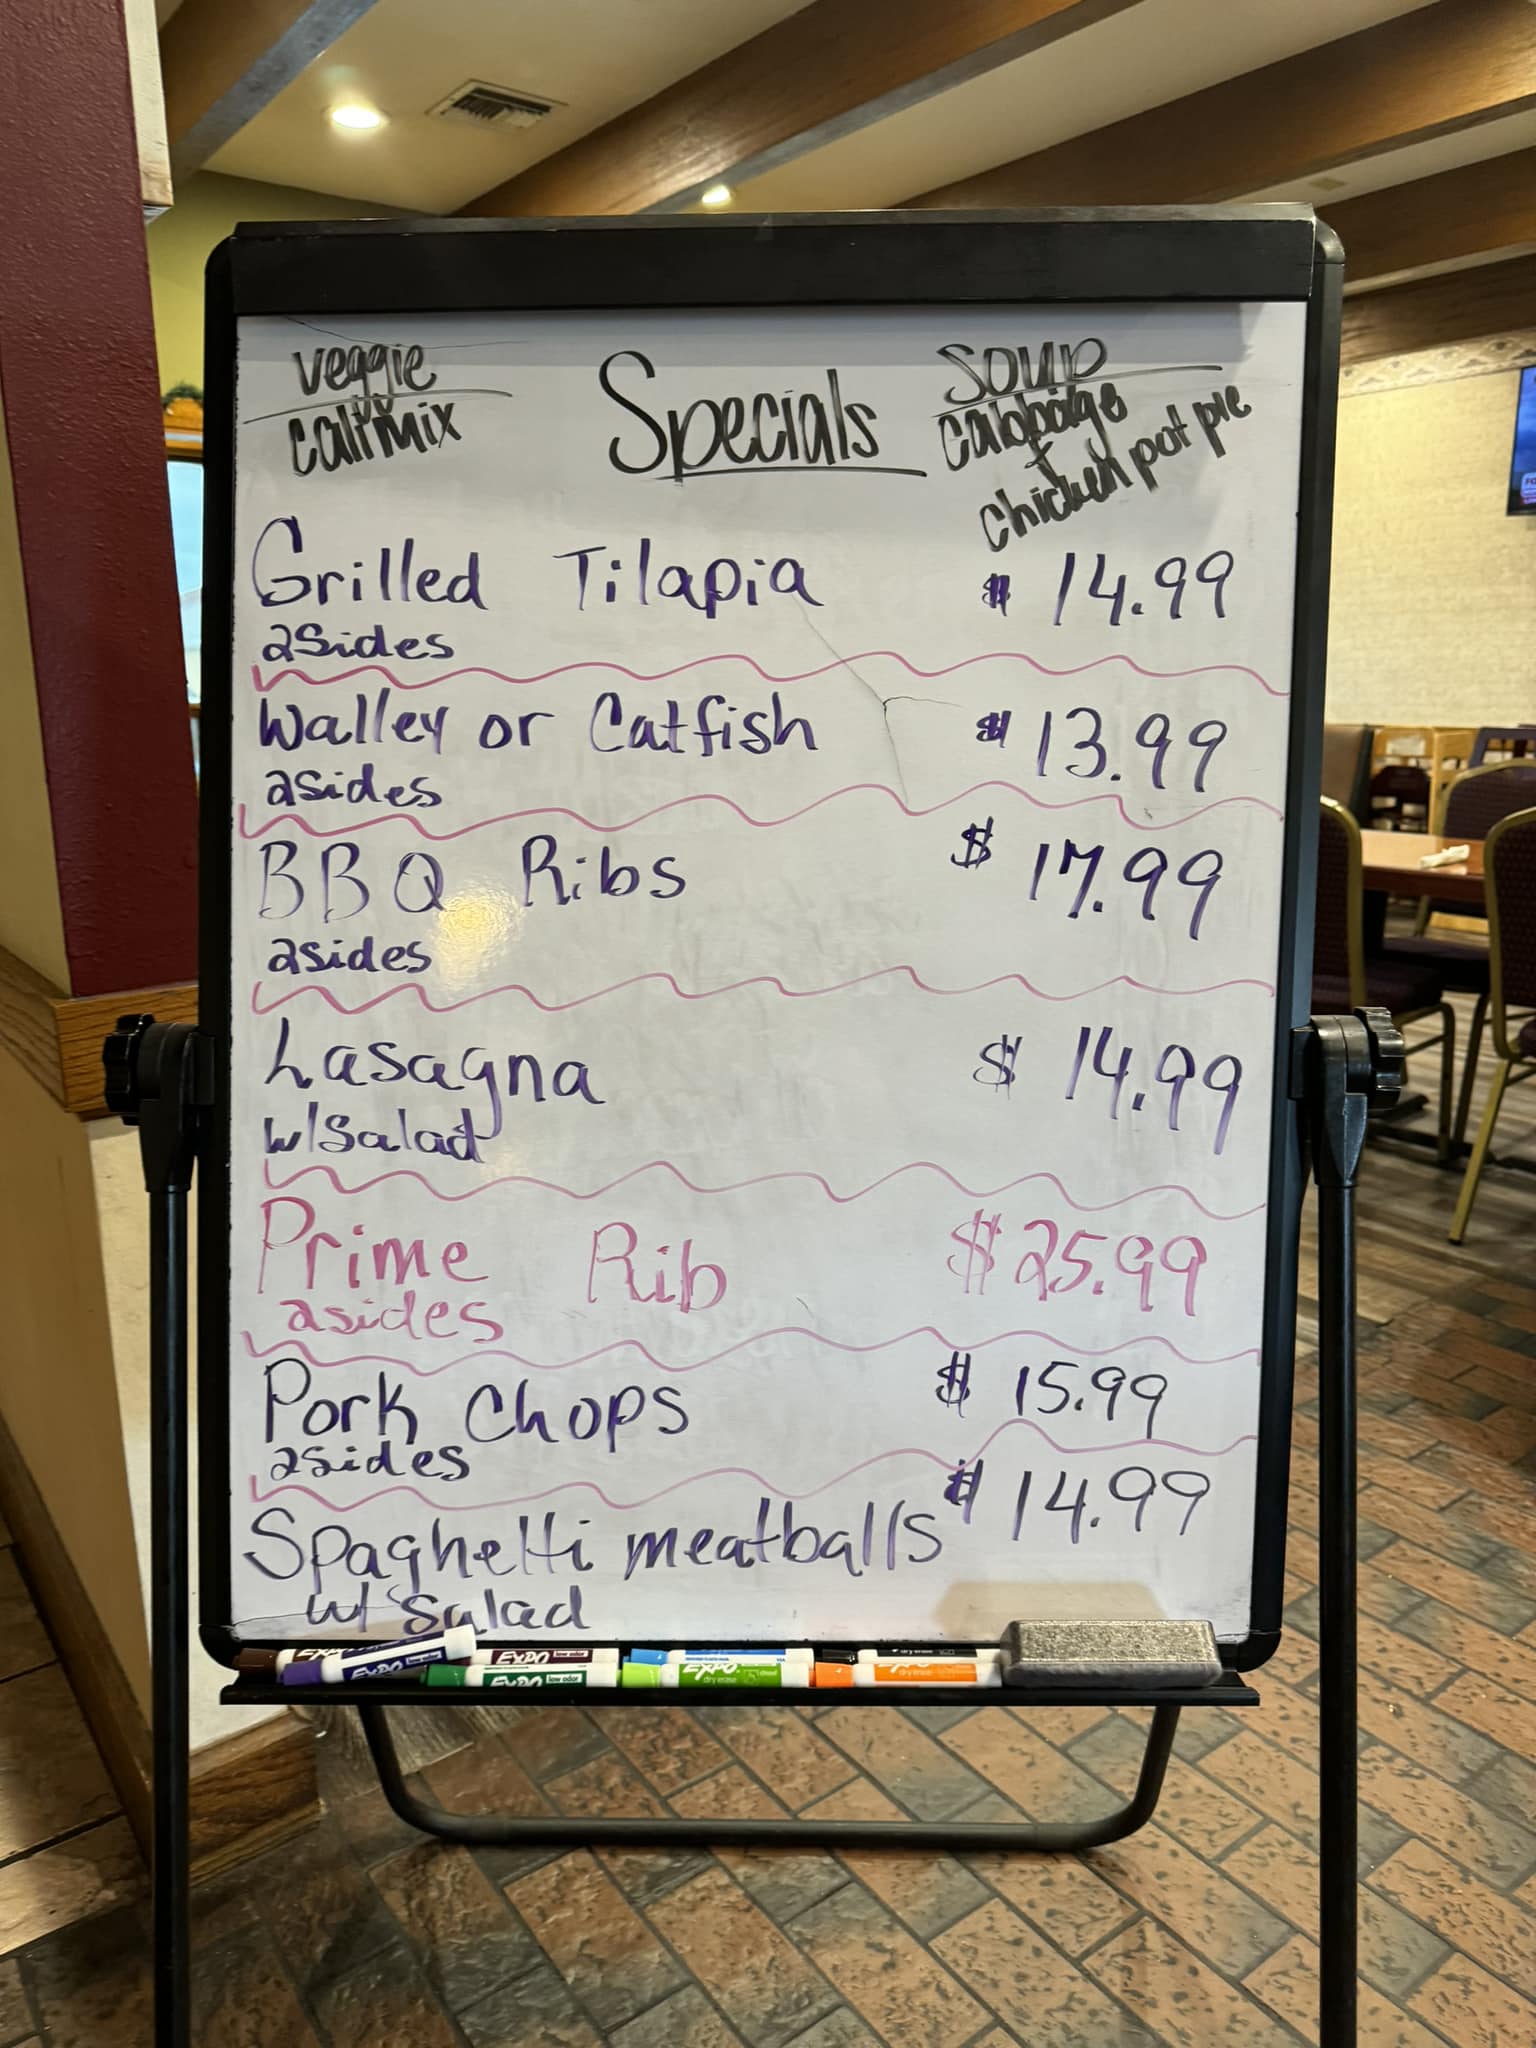 Veggie
Cali Mix
Specials
Soup
Cabbage
+
Chicken pot pie
Grilled Tilapia $ 14.99
2Sides
Walley or Catfish $ 13.99
2sides
BBQ Ribs $ 17.99
2sides
Lasagna $ 14.99
w/Salad
Prime Rib $25.99
2sides
Pork Chops $ 15.99
2sides
Spaghetti meatballs $ 14.99
w/ Salad
EXPO
EXPO low odor
EXPO low odor
EXPO low odor
EXPO dry erase
EXPO dry erase